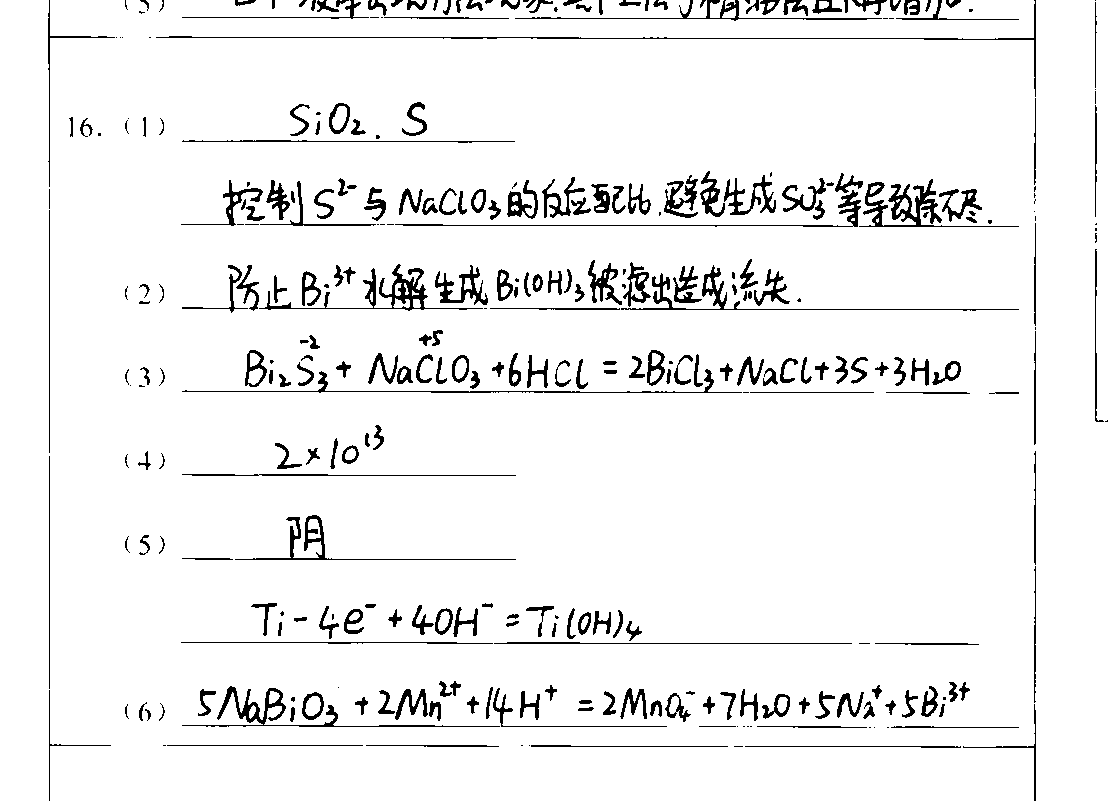 (5)
16. (1) SiO₂. S
控制S²⁻与NaClO₃的反应配比,避免生成SO₃²⁻等导致除不尽.
(2) 防止Bi³⁺水解生成Bi(OH)₃被滤出造成流失.
-2 +5
(3) Bi₂S₃ + NaClO₃ + 6HCl = 2BiCl₃ + NaCl + 3S + 3H₂O
(4) 2×10¹³
(5) 阴
Ti - 4e⁻ + 4OH⁻ = Ti(OH)₄
(6) 5NaBiO₃ + 2Mn²⁺ + 14H⁺ = 2MnO₄⁻ + 7H₂O + 5Na⁺ + 5Bi³⁺